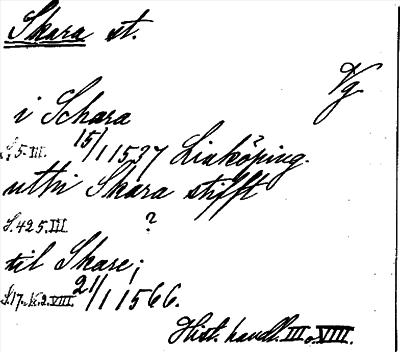 Skara st.
Vg
i Schara
S. 5. III. 15/1 1537 Linköping.
uthi Skara stifft
S. 425. III. ?
til Skare;
S. 17. k. 2. VIII. 21/1 1566.
Hist. handl. III o. VIII.